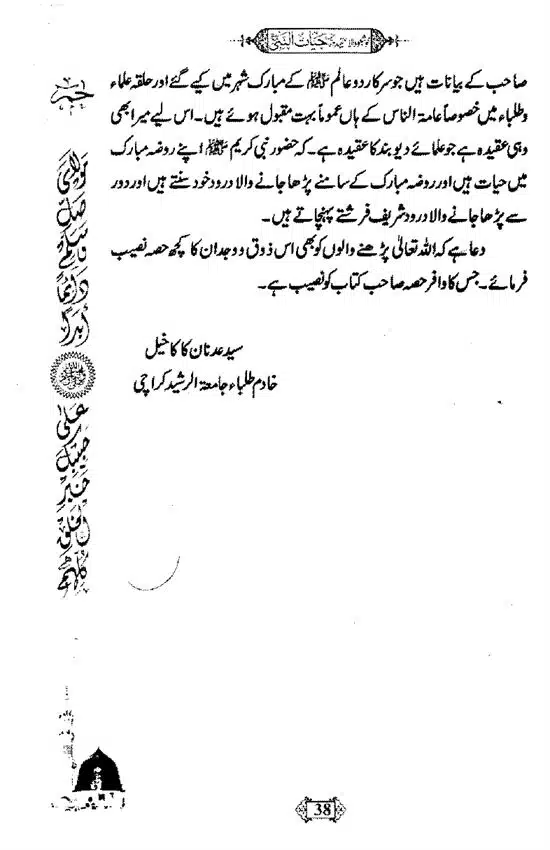 حیات النبی
صاحب کے بیانات ہیں جو سرکار دو عالم ﷺ کے مبارک شہر میں کیے گئے اور حلقہ علماء
وطلباء میں خصوصاً عامۃ الناس کے ہاں عموماً بہت مقبول ہوئے ہیں۔ اس لیے میرا بھی
وہی عقیدہ ہے جو علمائے دیوبند کا عقیدہ ہے۔ کہ حضور نبی کریم ﷺ اپنے روضہ مبارک
میں حیات ہیں اور روضہ مبارک کے سامنے پڑھا جانے والا درود خود سنتے ہیں اور دور
سے پڑھا جانے والا درود شریف فرشتے پہنچاتے ہیں۔
دعا ہے کہ اللہ تعالیٰ پڑھنے والوں کو بھی اس ذوق و وجدان کا کچھ حصہ نصیب
فرمائے۔ جس کا وافر حصہ صاحب کتاب کو نصیب ہے۔
سید عدنان کاکاخیل
خادم طلباء جامعۃ الرشید کراچی
مولای
صل
وسلم
دائما
أبدا
على
حبيبك
خير
الخلق
كلهم
38